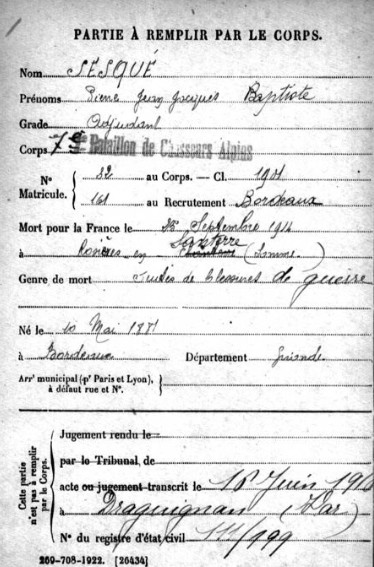 PARTIE À REMPLIR PAR LE CORPS.
Nom SESQUÉ
Prénoms Pierre Jean Jacques Baptiste
Grade Adjudant
Corps 7e Bataillon de Chasseurs Alpins
N° Matricule. 82 au Corps. — Cl. 1901
161 au Recrutement Bordeaux
Mort pour la France le 25 Septembre 1914
Santerre
à Rosières en (Somme)
Genre de mort Suites de blessures de guerre
Né le 10 Mai 1881
à Bordeaux Département Gironde
Arrt municipal (pr Paris et Lyon), à défaut rue et N°.
Cette partie n'est pas à remplir par le Corps.
Jugement rendu le
par le Tribunal de
acte ou jugement transcrit le 16 Juin
à Draguignan (Var)
N° du registre d'état civil 111/199
269-708-1922. [26434]